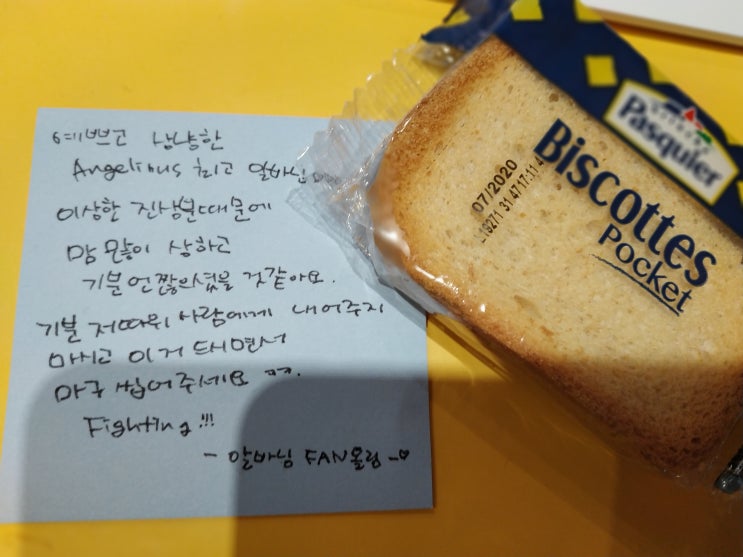 예쁘고 상냥한
Angelinus 최고 알바님
이상한 진상분때문에
맘 많이 상하고
기분 언짢으셨을 것같아요.
기분 저따위 사람에게 내어주지
마시고 이거 드시면서
마구 씹어주세요 ㅋㅋ.
Fighting!!!
- 알바님 FAN올림 -♡
Pasquier
Biscottes
Pocket
07/2020
L19271 31 47 17:11 4